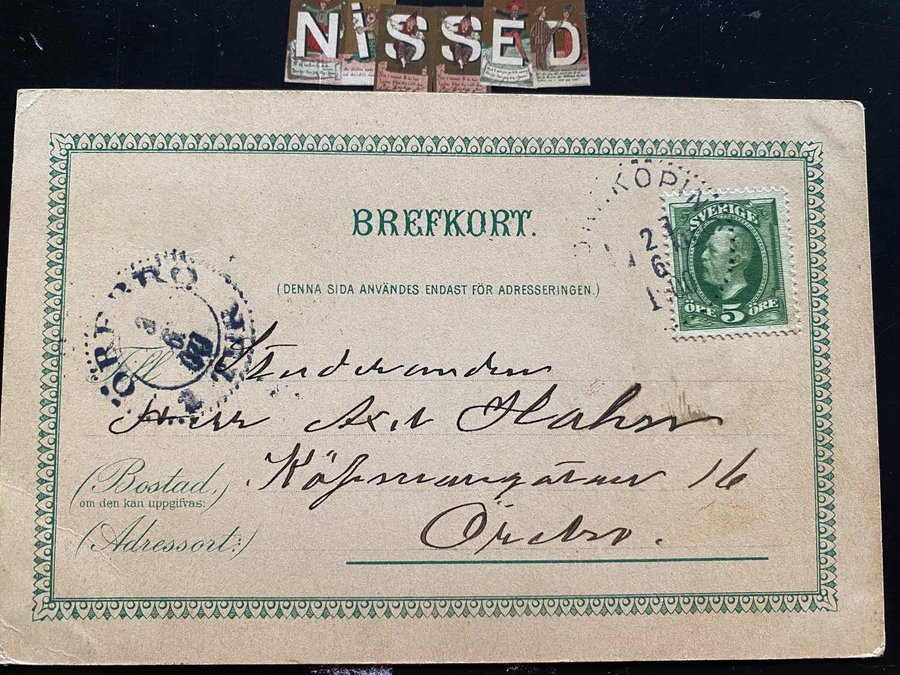 NISSED
BREFKORT.
(DENNA SIDA ANVÄNDES ENDAST FÖR ADRESSERINGEN.)
KÖPIN
2
6
1
SVERIGE
ÖPE 5 ÖRE
ÖREBRO
Till
Studeranden
Herr Axel Hahn
Köpmangatan 16
(Bostad,)
om den kan uppgifvas:
Örebro.
(Adressort:)